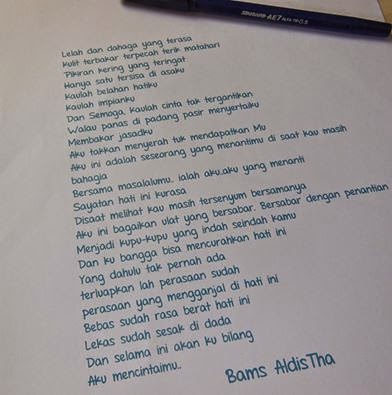 STANDARD-AE7 ALFA TIP 0.5
Lelah dan dahaga yang terasa
Kulit terbakar terpecah terik matahari
Pikiran kering yang teringat
Hanya satu tersisa di asaku
Kaulah belahan hatiku
Kaulah impianku
Dan Semoga, Kaulah cinta tak tergantikan
Walau panas di padang pasir menyertaiku
Membakar jasadku
Aku takkan menyerah tuk mendapatkan Mu
Aku ini adalah seseorang yang menantimu di saat kau masih
bahagia
Bersama masalalumu.. ialah aku..aku yang menanti
Sayatan hati ini kurasa
Disaat melihat kau masih tersenyum bersamanya
Aku ini bagaikan ulat yang bersabar. Bersabar dengan penantian
Menjadi kupu-kupu yang indah seindah kamu
Dan ku bangga bisa mencurahkan hati ini
Yang dahulu tak pernah ada
terluapkan lah perasaan sudah
perasaan yang mengganjal di hati ini
Bebas sudah rasa berat hati ini
Lekas sudah sesak di dada
Dan selama ini akan ku bilang
Aku mencintaimu..
Bams AldisTha